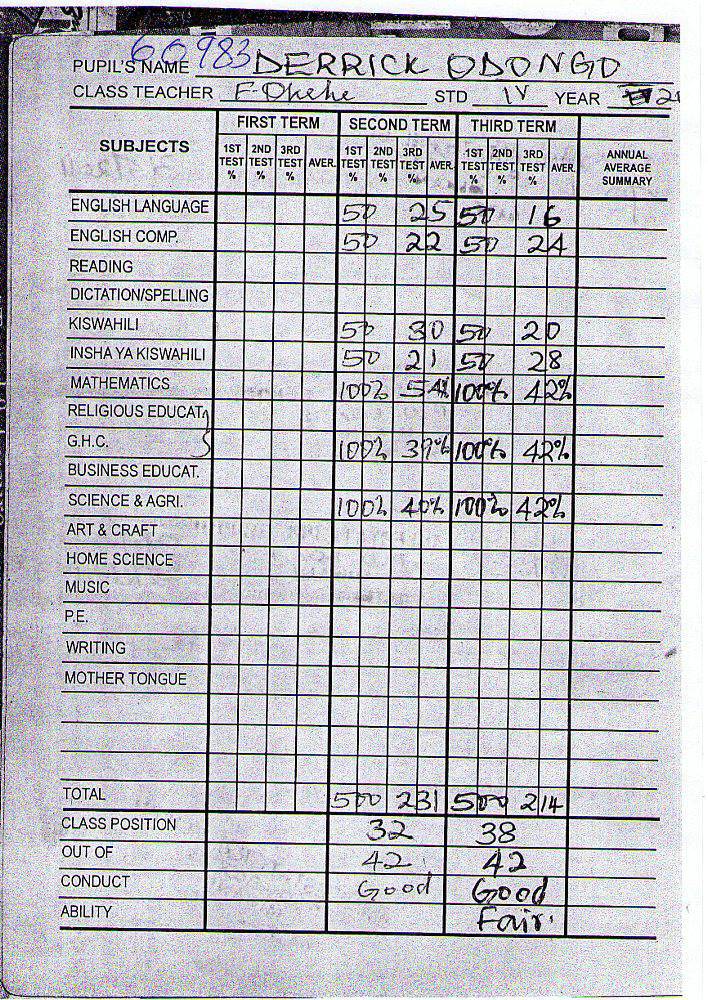 60983
PUPIL'S NAME DERRICK ODONGO
CLASS TEACHER F. Okehe STD IV YEAR
SUBJECTS FIRST TERM SECOND TERM THIRD TERM ANNUAL AVERAGE SUMMARY
1ST TEST % 2ND TEST % 3RD TEST % AVER. 1ST TEST % 2ND TEST % 3RD TEST % AVER. 1ST TEST % 2ND TEST % 3RD TEST % AVER.
ENGLISH LANGUAGE 50 25 50 16
ENGLISH COMP. 50 22 50 24
READING
DICTATION/SPELLING
KISWAHILI 50 30 50 20
INSHA YA KISWAHILI 50 21 50 28
MATHEMATICS 100% 54% 100% 42%
RELIGIOUS EDUCAT.
G.H.C. 100% 39% 100% 42%
BUSINESS EDUCAT.
SCIENCE & AGRI. 100% 40% 100% 42%
ART & CRAFT
HOME SCIENCE
MUSIC
P.E.
WRITING
MOTHER TONGUE
TOTAL 500 231 500 214
CLASS POSITION 32 38
OUT OF 42 42
CONDUCT Good Good
ABILITY Fair.